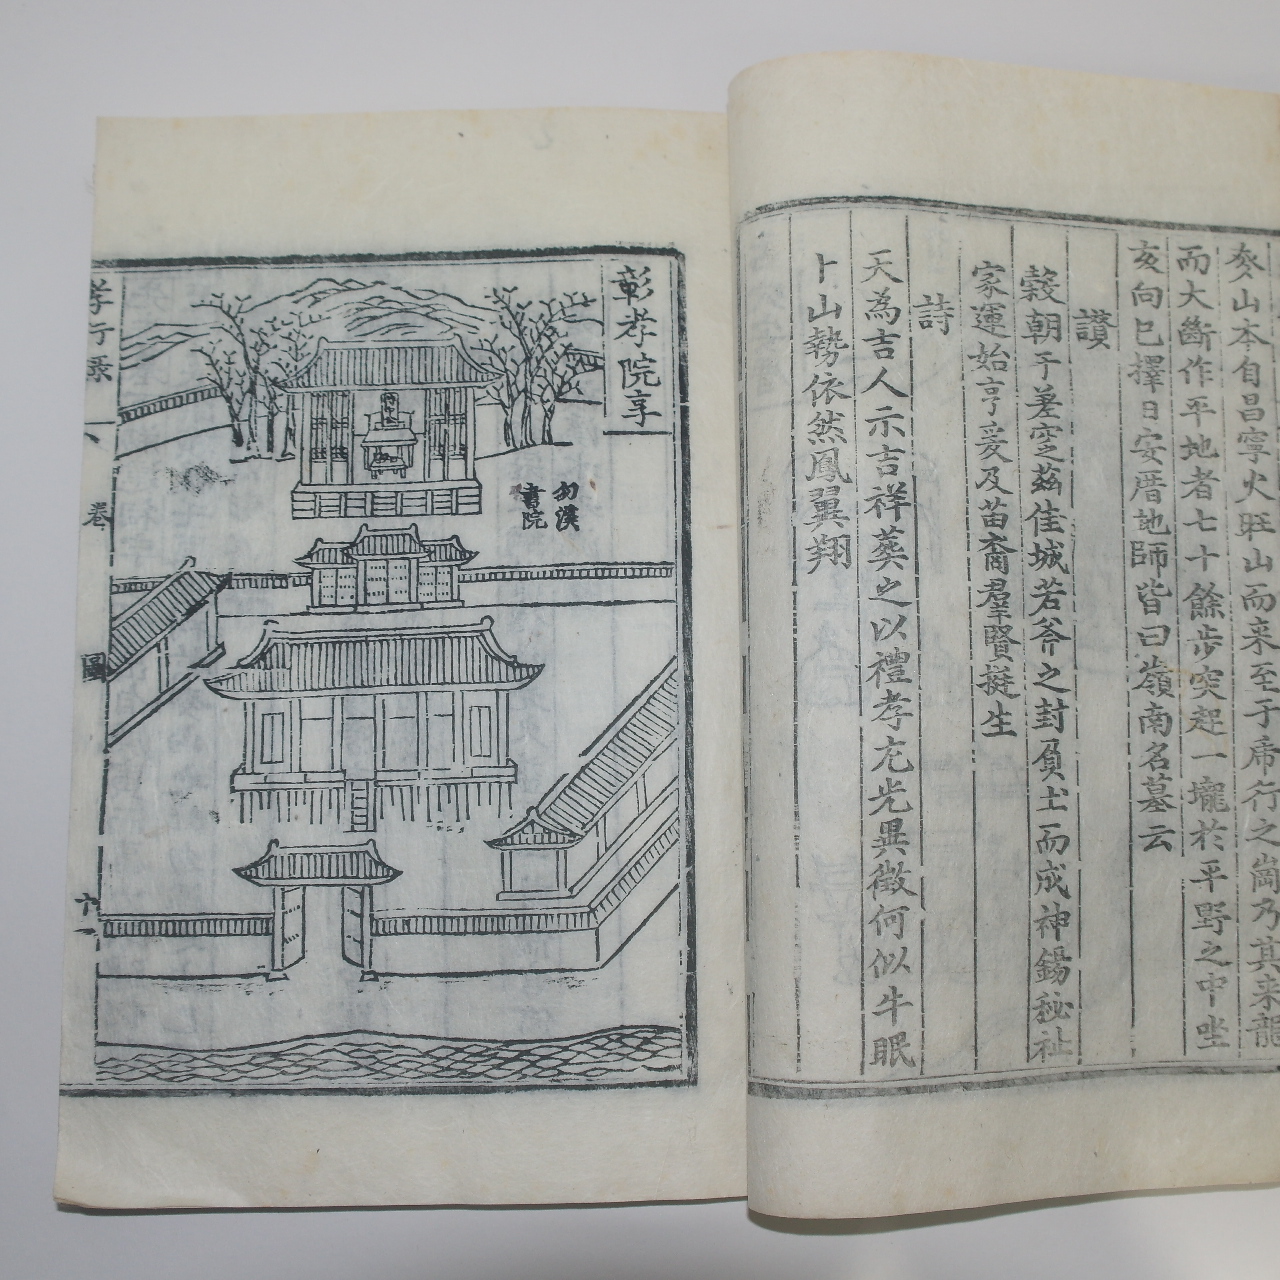 癸山本自昌寧火旺山而来至于席行之崗乃其来龍
而大斷作平地者七十餘步突起一壠於平野之中坐
亥向巳擇日安厝地師皆曰嶺南名墓云
讃
穀朝于差空之茲佳城若斧之封負土而成神錫秘祉
家運始亨爰及苗裔羣賢挺生
詩
天為吉人示吉祥葬之以禮孝尤光異徵何似牛眠
卜山勢依然鳳翼翔
彰孝院享
勿溪
書院
孝行录
卷
圖